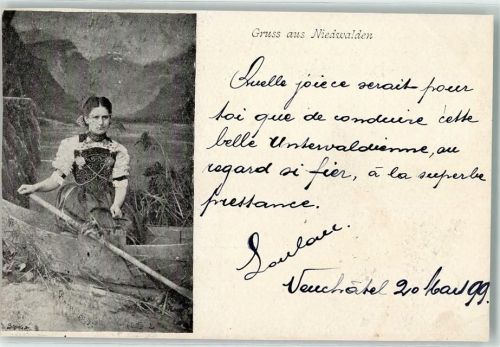 Gruss aus Niedwalden
Quelle joiece serait pour
toi que de conduire cette
belle Unterwaldienne, au
regard si fier, à la superbe
prestance.
Loulou.
Neuchâtel 20 Mars 99.